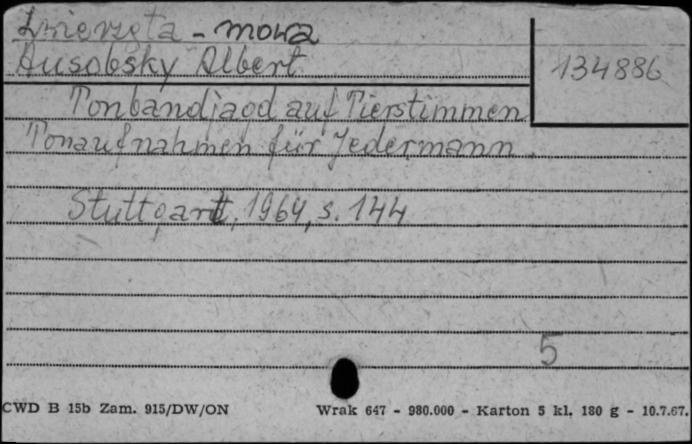 Zwierzęta - mowa
Ausobsky Albert
134886
Tonbandjagd auf Tierstimmen
Tonaufnahmen für Jedermann
Stuttgart, 1964, s. 144
5
CWD B 15b Zam. 915/DW/ON
Wrak 647 - 980.000 - Karton 5 kl. 180 g - 10.7.67.